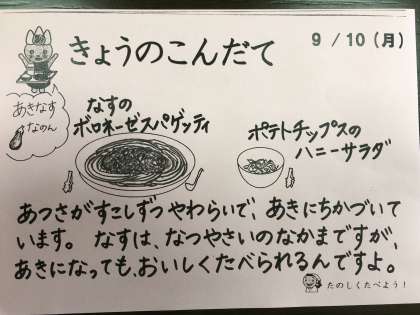 きょうのこんだて
9/10(月)
あきなす
なのん
なすの
ボロネーゼスパゲッティ
ポテトチップスの
ハニーサラダ
あつさがすこしずつやわらいで、あきにちかづいて
います。 なすは、なつやさいのなかまですが、
あきになっても、おいしくたべられるんですよ。
たのしくたべよう!